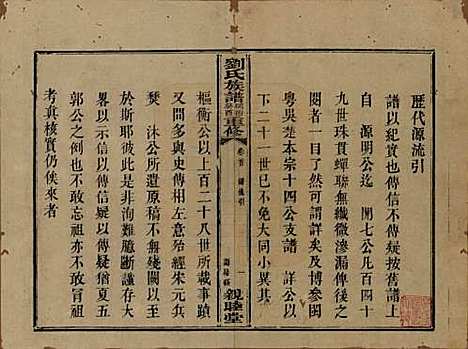 歷代源流引
譜以紀實也傳信不傳疑竊按舊譜上
自 源明公迄 開七公凡百四十
九世珠貫蟬聯無纖微滲漏俾後之
閱者一目了然可謂詳矣及博參閩
粵吳楚本宗十四公支譜 昇公以
下二十一世已不免大同小異其
劉氏族譜 重修
卷首 源流引
一
親睦堂
樞衡公以上百二十八世所載事蹟
年代又與史傳相左意始經朱元兵
燹 沐公所遺原稿不無殘闕以至
於斯耶彼此是非洵難臆斷謹並存
畧異以示信以傳信疑以傳疑猶夏五
郭公之例焉吾祖亦不敢妄
考真核實仍俟來者